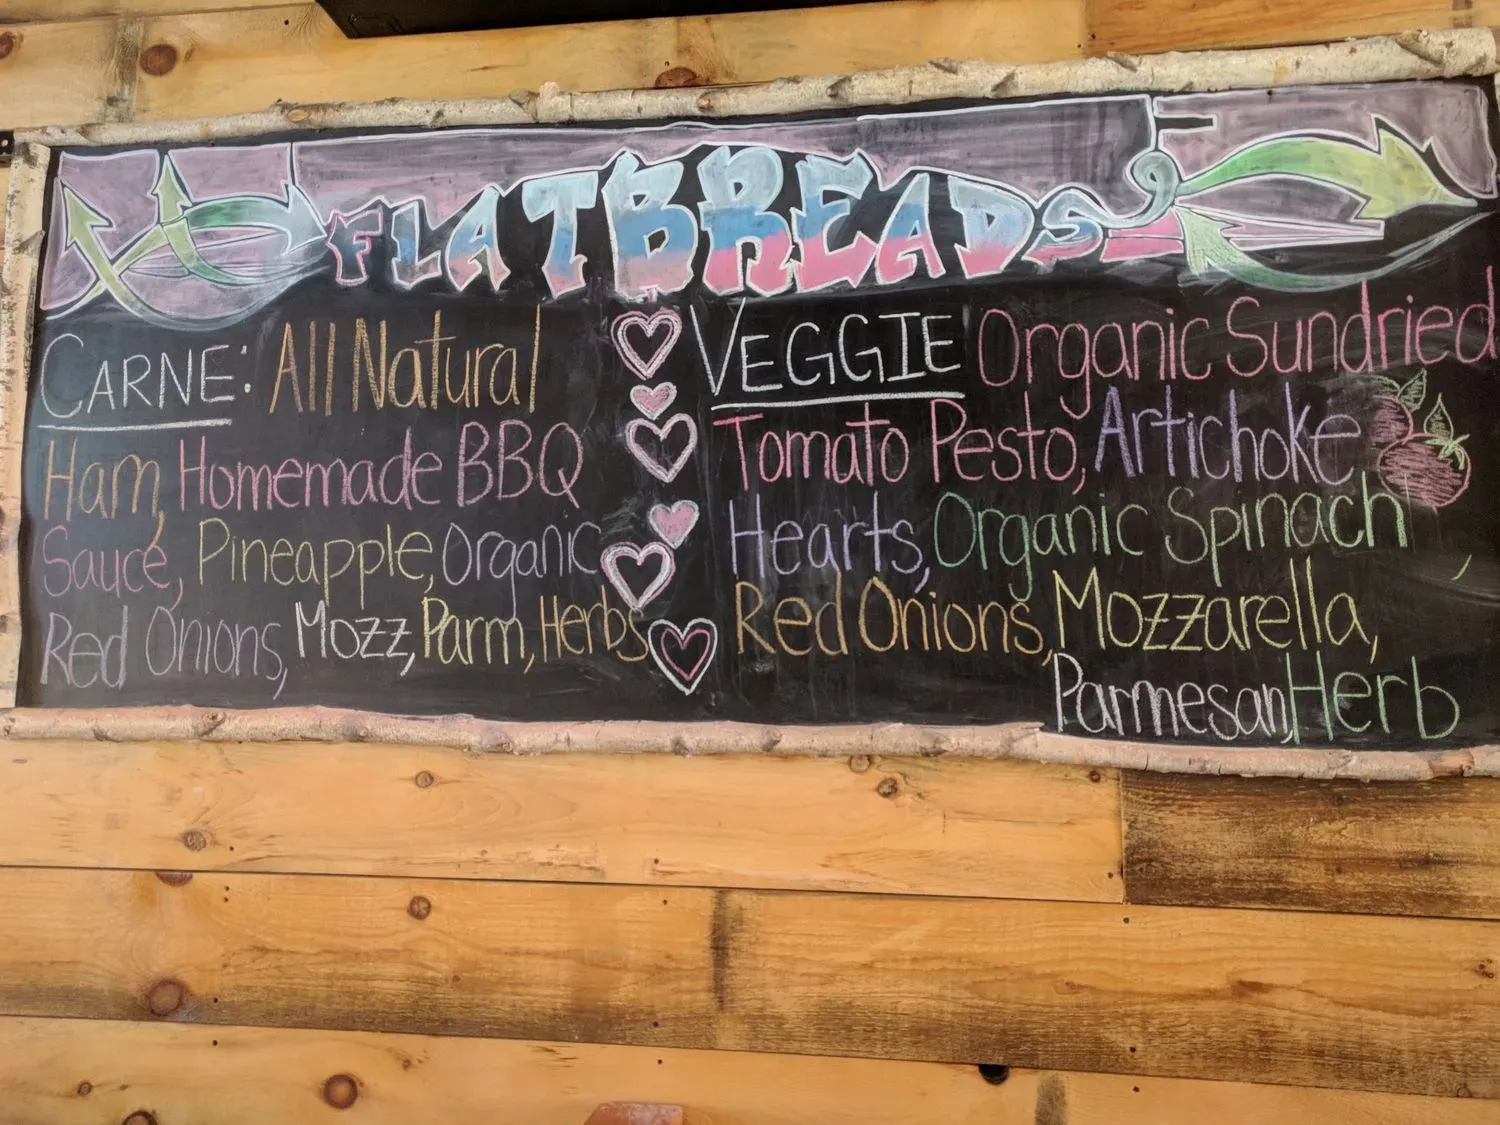 FLATBREADS
CARNE: All Natural
Ham, Homemade BBQ
Sauce, Pineapple, Organic
Red Onions, Mozz, Parm, Herbs
VEGGIE Organic Sundried
Tomato Pesto, Artichoke
Hearts, Organic Spinach,
Red Onions, Mozzarella,
Parmesan, Herb